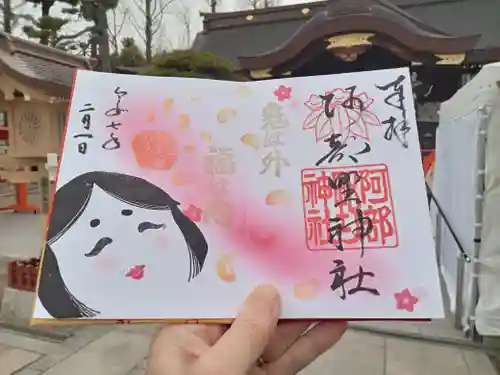 奉拝
阿部野神社
阿部
野
神社
鬼は外
福は内
令和七年
二月一日